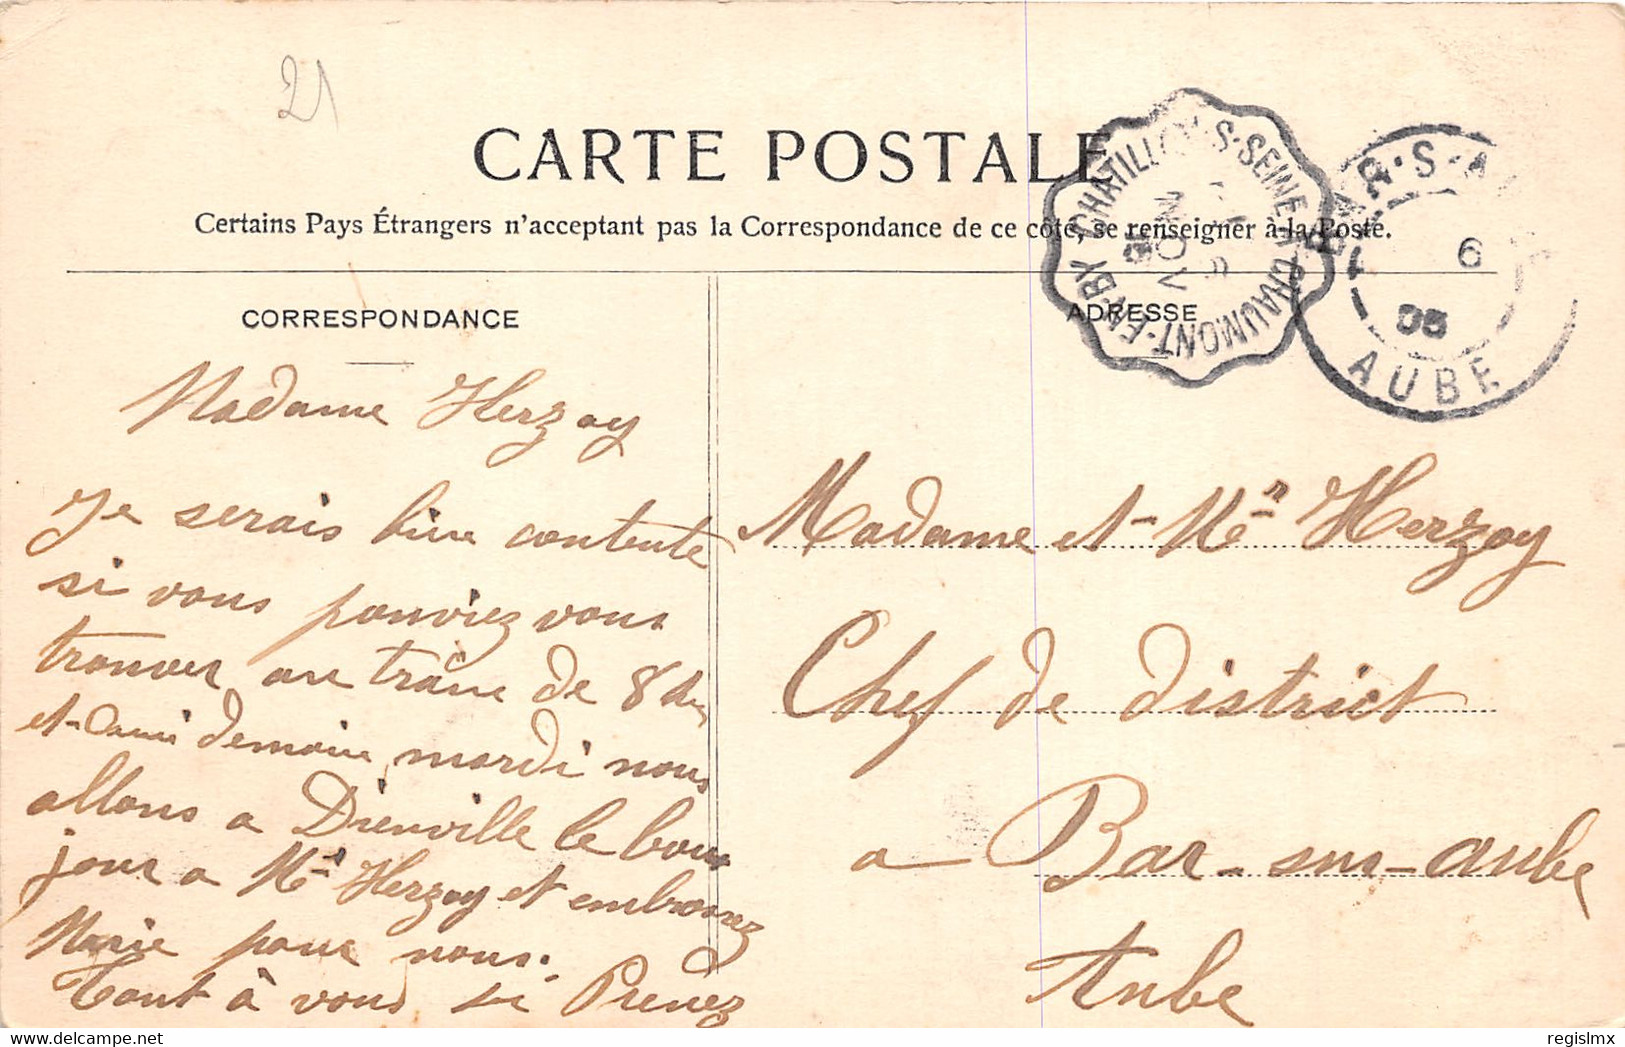 21
CARTE POSTALE
Certains Pays Étrangers n'acceptant pas la Correspondance de ce côté, se renseigner à la Poste.
CHATILLON-S-SEINE A CHAUMONT-EN-BY
NOV
BAR-S-AUBE
6
05
AUBE
CORRESPONDANCE
ADRESSE
Madame Herzoy
Je serais bien contente
si vous pouviez vous
trouver au traine de 8h
et demaine mardi nous
allons a Dienville le bon
jour a Mr Herzoy et embrassez
Marie pour nous.
Tout à vous
Madame et Mr Herzoy
Chef de district
a Bar-sur-aube
Aube
regislmx